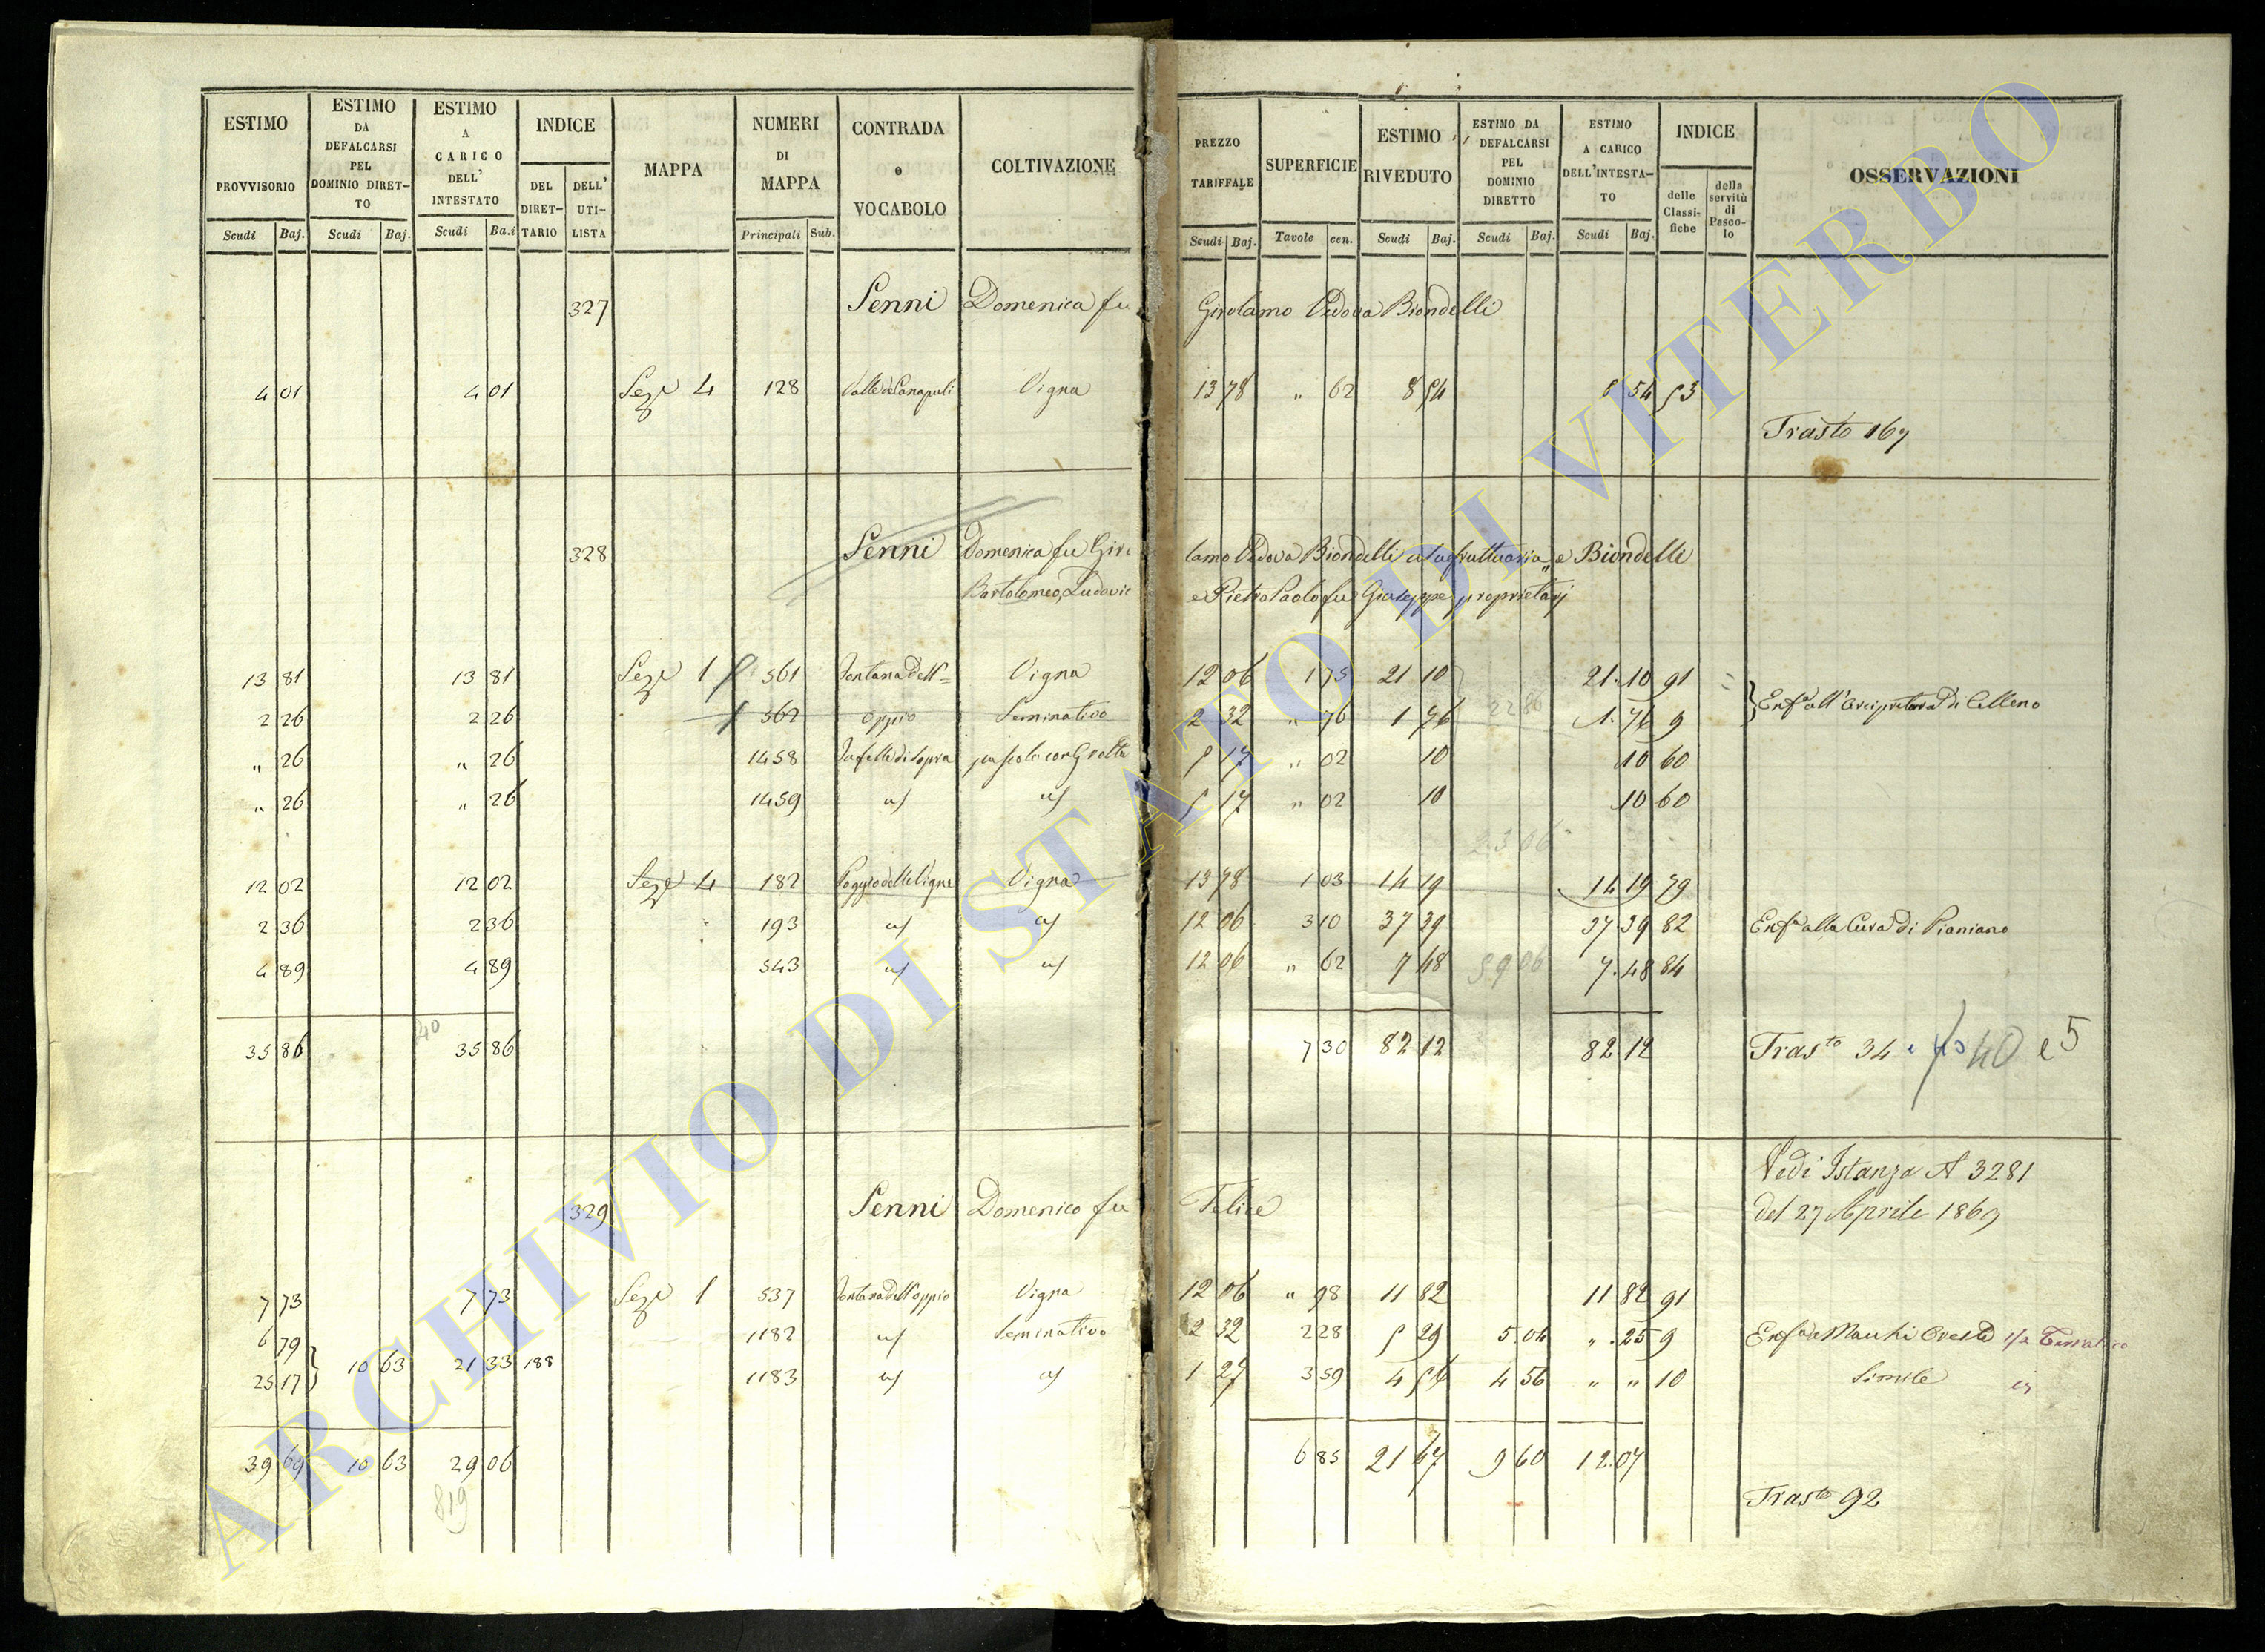 ESTIMO PROVVISORIO | ESTIMO DA DEFALCARSI PEL DOMINIO DIRET-TO | ESTIMO A CARICO DELL' INTESTATO | INDICE | MAPPA | NUMERI DI MAPPA | CONTRADA o VOCABOLO | COLTIVAZIONE | PREZZO TARIFFALE | SUPERFICIE | ESTIMO RIVEDUTO | ESTIMO DA DEFALCARSI PEL DOMINIO DIRETTO | ESTIMO A CARICO DELL'INTESTA-TO | INDICE | OSSERVAZIONI
DEL DIRET-TARIO | DELL' UTI-LISTA | delle Classi-fiche | della servitù di Pasco-lo
Scudi Baj. | Scudi Baj. | Scudi Ba.i | Principali Sub. | Scudi Baj. | Tavole cen. | Scudi Baj. | Scudi Baj. | Scudi Baj.
327 Senni Domenica fu Girolamo Vedova Biondelli
4 01 | 4 01 | Seze 4 | 128 | Vigna | 13 78 | " 62 | 8 54 | 8 54 | 53
Trasto 167
328 Senni Domenica fu Giro lamo Vedova Biondelli usufruttuaria, e Biondelli
Bartolomeo, Ludovic e Pietro Paolo fu Giuseppe proprietarj
13 81 | 13 81 | Seze 1 | 561 | Fontana dell'= | Vigna | 12 06 | 1 75 | 21 10 | 21.10 | 91
2 26 | 2 26 | 562 | oppio | Seminativo | 2 32 | " 76 | 1 76 | 22 86 | 1.76 | 9 | Enf.a all' Arcipretura di Celleno
" 26 | " 26 | 1458 | pascolo con Grotta | 5 17 | " 02 | 10 | 10 | 60
" 26 | " 26 | 1459 | 5 17 | " 02 | 10 | 10 | 60
2306
12 02 | 12 02 | Seze 4 | 182 | Poggio delle Vigne | Vigna | 13 78 | 1 03 | 14 19 | 14 19 | 79
2 36 | 2 36 | 193 | 12 06 | 3 10 | 37 39 | 37.39 | 82 | Enf.a alla Cura di Pianiano
4 89 | 4 89 | 543 | 12 06 | " 62 | 7 48 | 59 06 | 7.48 | 84
40
35 86 | 35 86 | 7 30 | 82 12 | 82 12 | Tras.to 34 40 e 5
Vedi Istanza N 3281
del 27 Aprile 1869
329 Senni Domenico fu Felice
7 73 | 7 73 | Seze 1 | 537 | Fontana dell'oppio | Vigna | 12 06 | " 98 | 11 82 | 11 82 | 91
6 79 | 1182 | Seminativo | 2 32 | 2 28 | 5 29 | 5.04 | " .25 | 9
10 63 | 21 33 | 188
25 17 | 1183 | 1 27 | 3 59 | 4 56 | 4 56 | " " | 10 | Simile
39 69 | 10 63 | 29 06 | 6 85 | 21 67 | 9 60 | 12.07
819
Trasto 92
ARCHIVIO DI STATO DI VITERBO